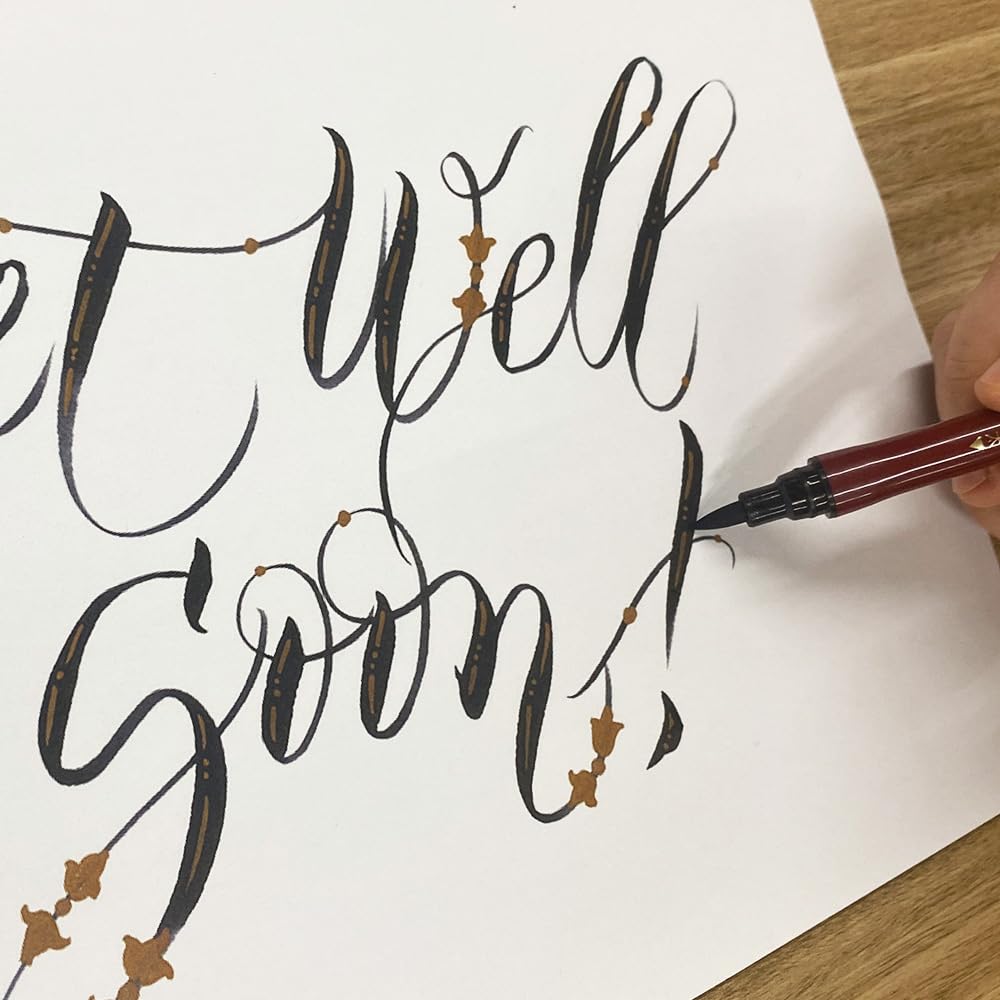 et Well
Soon!